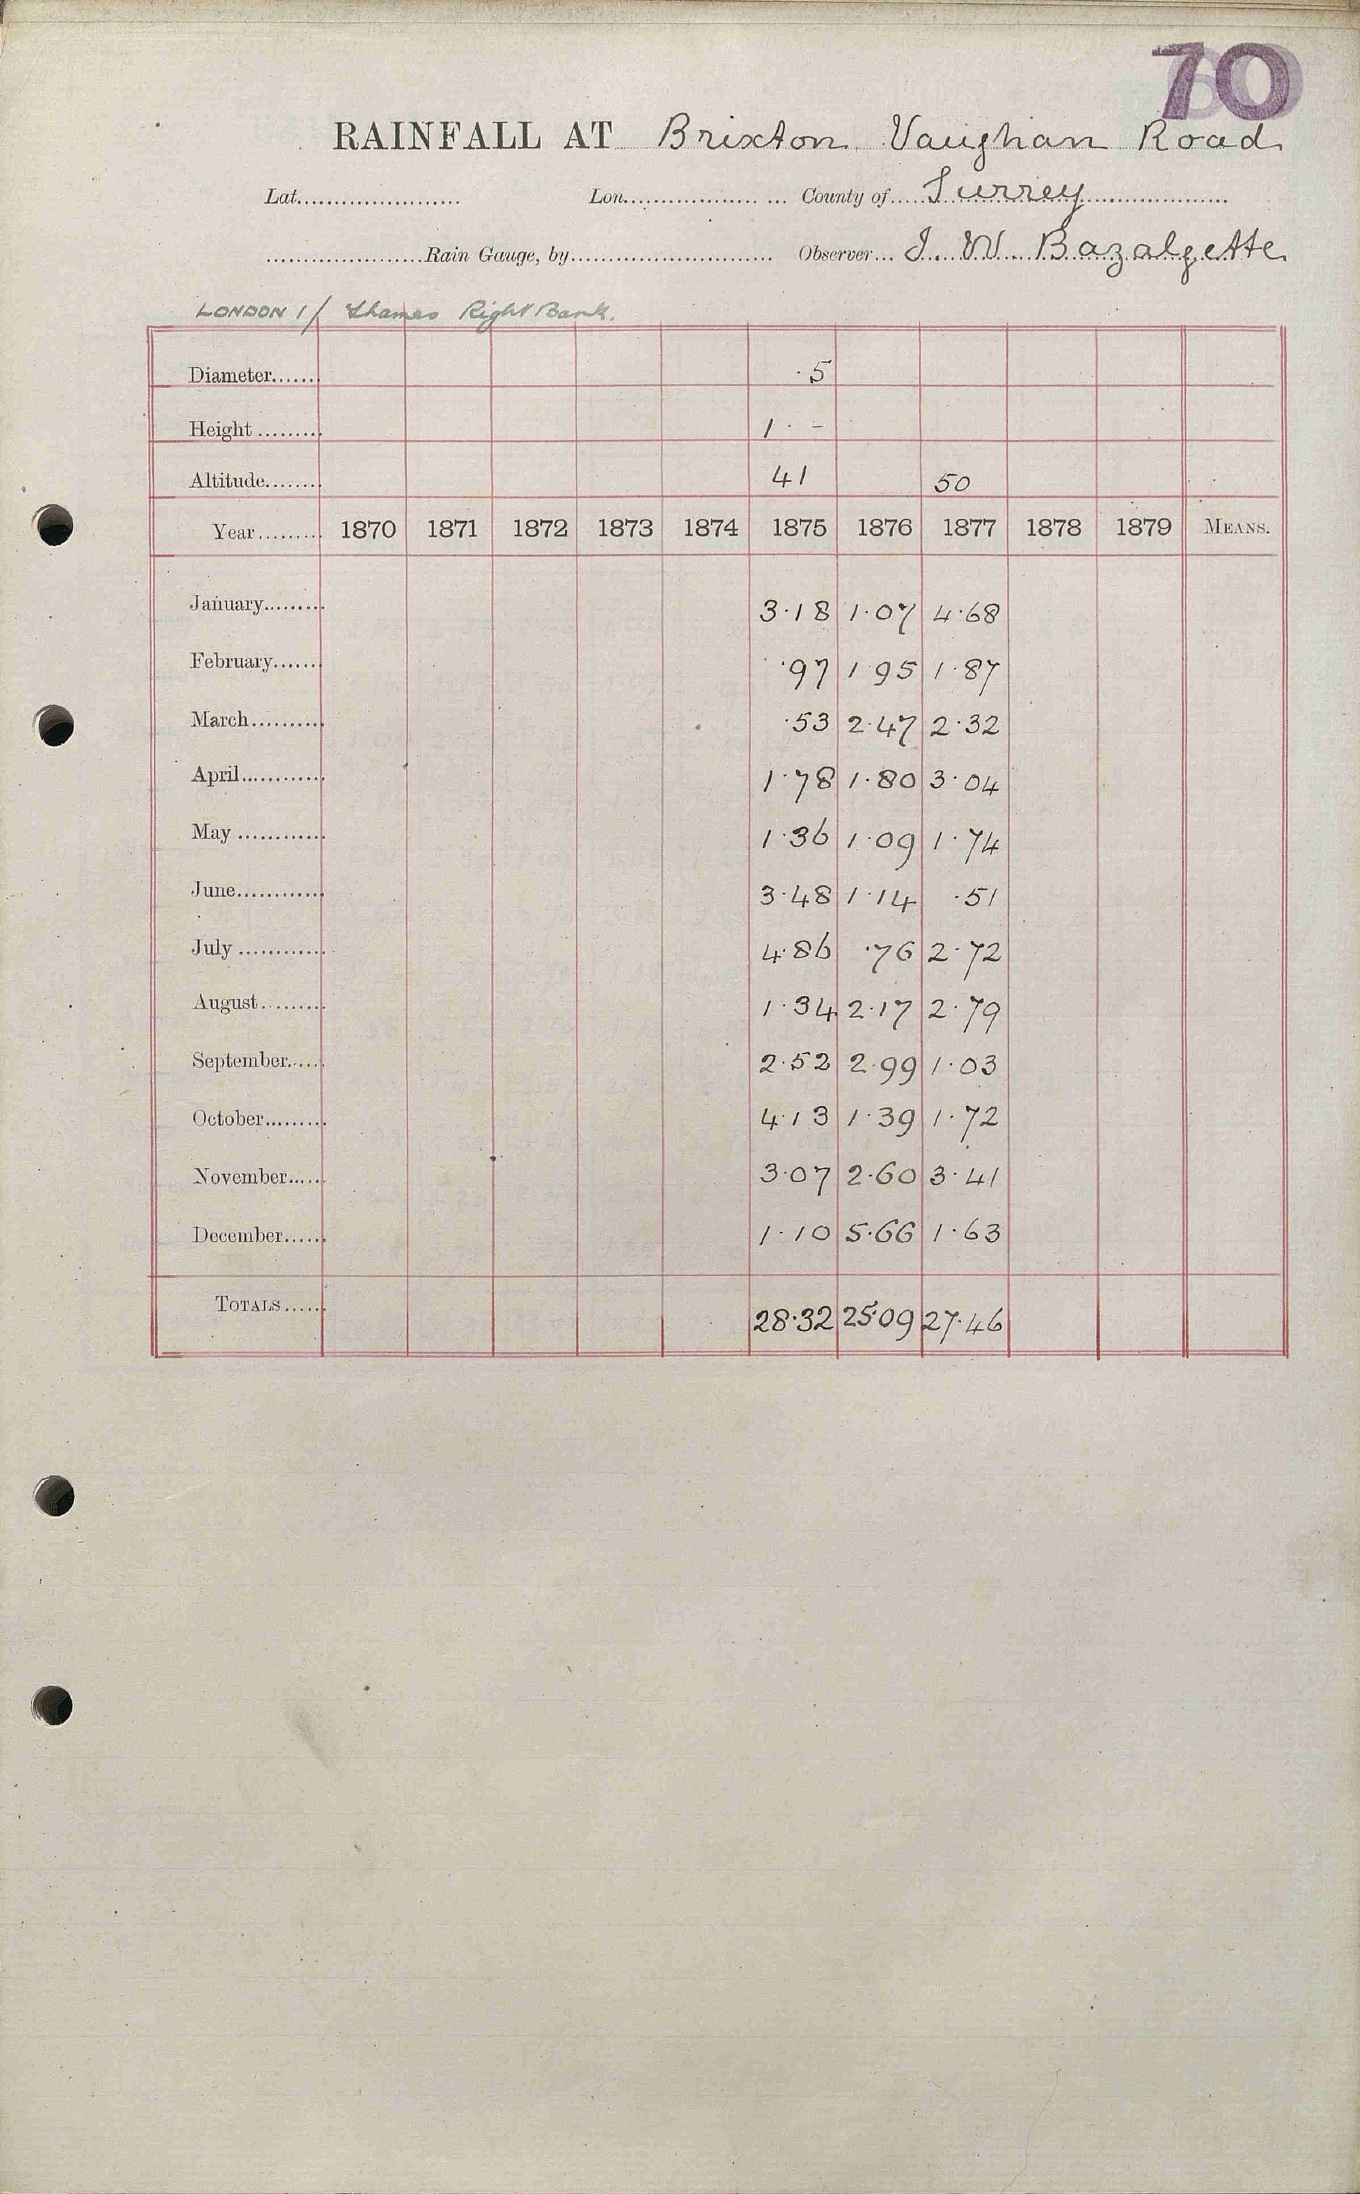 70
RAINFALL AT Brixton Vaughan Road
Lat...................... Lon................... ... County of.....Surrey....................
......................Rain Gauge, by............................ Observer... J. W. Bazalgette
LONDON 1/ Thames Right Bank.
Diameter....... ·5
Height......... 1 · -
Altitude........ 41 50
Year......... 1870 1871 1872 1873 1874 1875 1876 1877 1878 1879 MEANS.
January......... 3·18 1·07 4·68
February....... ·97 1·95 1·87
March.......... ·53 2·47 2·32
April............ 1·78 1·80 3·04
May ............ 1·36 1·09 1·74
June............ 3·48 1·14 ·51
July ............ 4·86 ·76 2·72
August......... 1·34 2·17 2·79
September...... 2·52 2·99 1·03
October......... 4·13 1·39 1·72
November...... 3·07 2·60 3·41
December...... 1·10 5·66 1·63
TOTALS...... 28·32 25·09 27·46